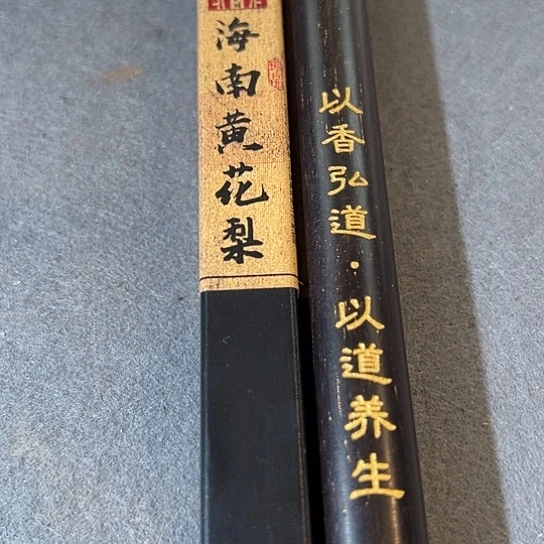 海南黄花梨
以香弘道·以道养生